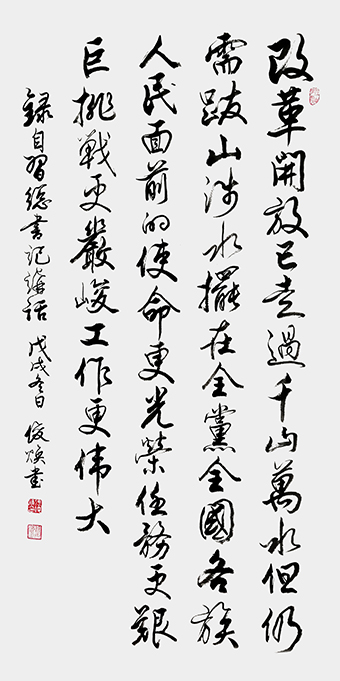 改革開放已走過千山萬水但仍
需跋山涉水擺在全黨全國各族
人民面前的使命更光榮任務更艱
巨挑戰更嚴峻工作更伟大
録自習總書记講话 戊戌冬日 俊煥書